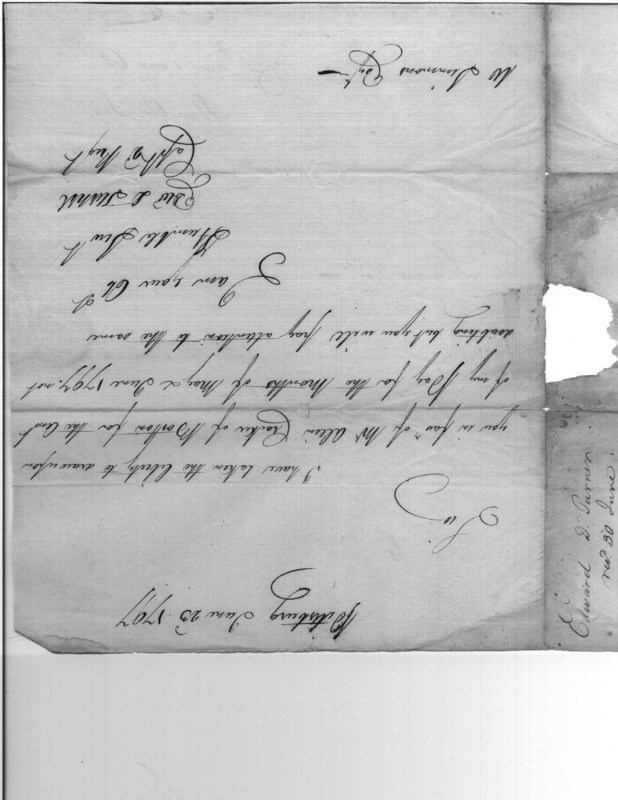 Pittsburg June 23d 1797
Sir
I have taken the liberty to draw upon
you in favr of Mr Allen Crocker of Boston for the Amt
of my Pay for the Months of May & June 1797. not
doubting but you will pay attention to the same
I am your Obt
Humble Servt
Edwd D Turner
Capt 2d Regt
Wm Simmons Esqr
Edward D. Turner
rec. 30 June.